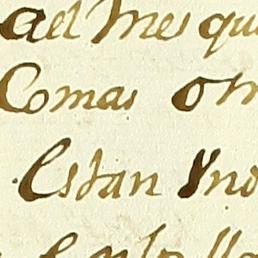 ael Mes qu
Comas o
Estan Yno